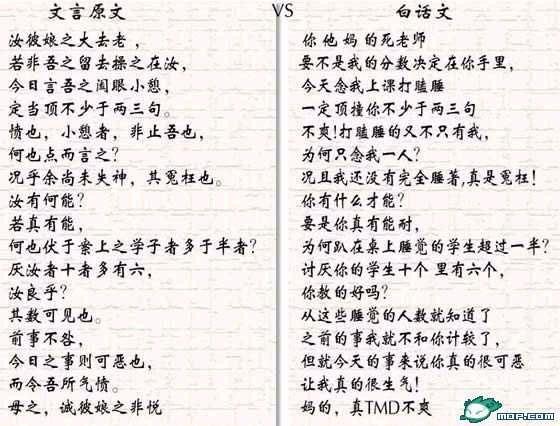 文言原文
VS
白话文
汝彼娘之大去老，
若非吾之留去操之在汝，
今日言吾之闺眼小憩，
定当顶不少于两三句。
愤也，小憩者，非止吾也，
何也点而言之？
况乎余尚未失神，其冤枉也。
汝有何能？
若真有能，
何也伏于案上之学子者多于半者？
厌汝者十者多有六，
汝良乎？
其数可见也。
前事不咎，
今日之事则可恶也，
而令吾所气愤。
母之，诚彼娘之非悦
你他妈的死老师
要不是我的分数决定在你手里，
今天念我上课打瞌睡
一定顶撞你不少于两三句
不爽！打瞌睡的又不只有我，
为何只念我一人？
况且我还没有完全睡著，真是冤枉！
你有什么才能？
要是你真有能耐，
为何趴在桌上睡觉的学生超过一半？
讨厌你的学生十个 里有六个，
你教的好吗？
从这些睡觉的人数就知道了
之前的事我就不和你计较了，
但就今天的事来说你真的很可恶
让我真的很生气！
妈的，真TMD不爽
MOP.COM